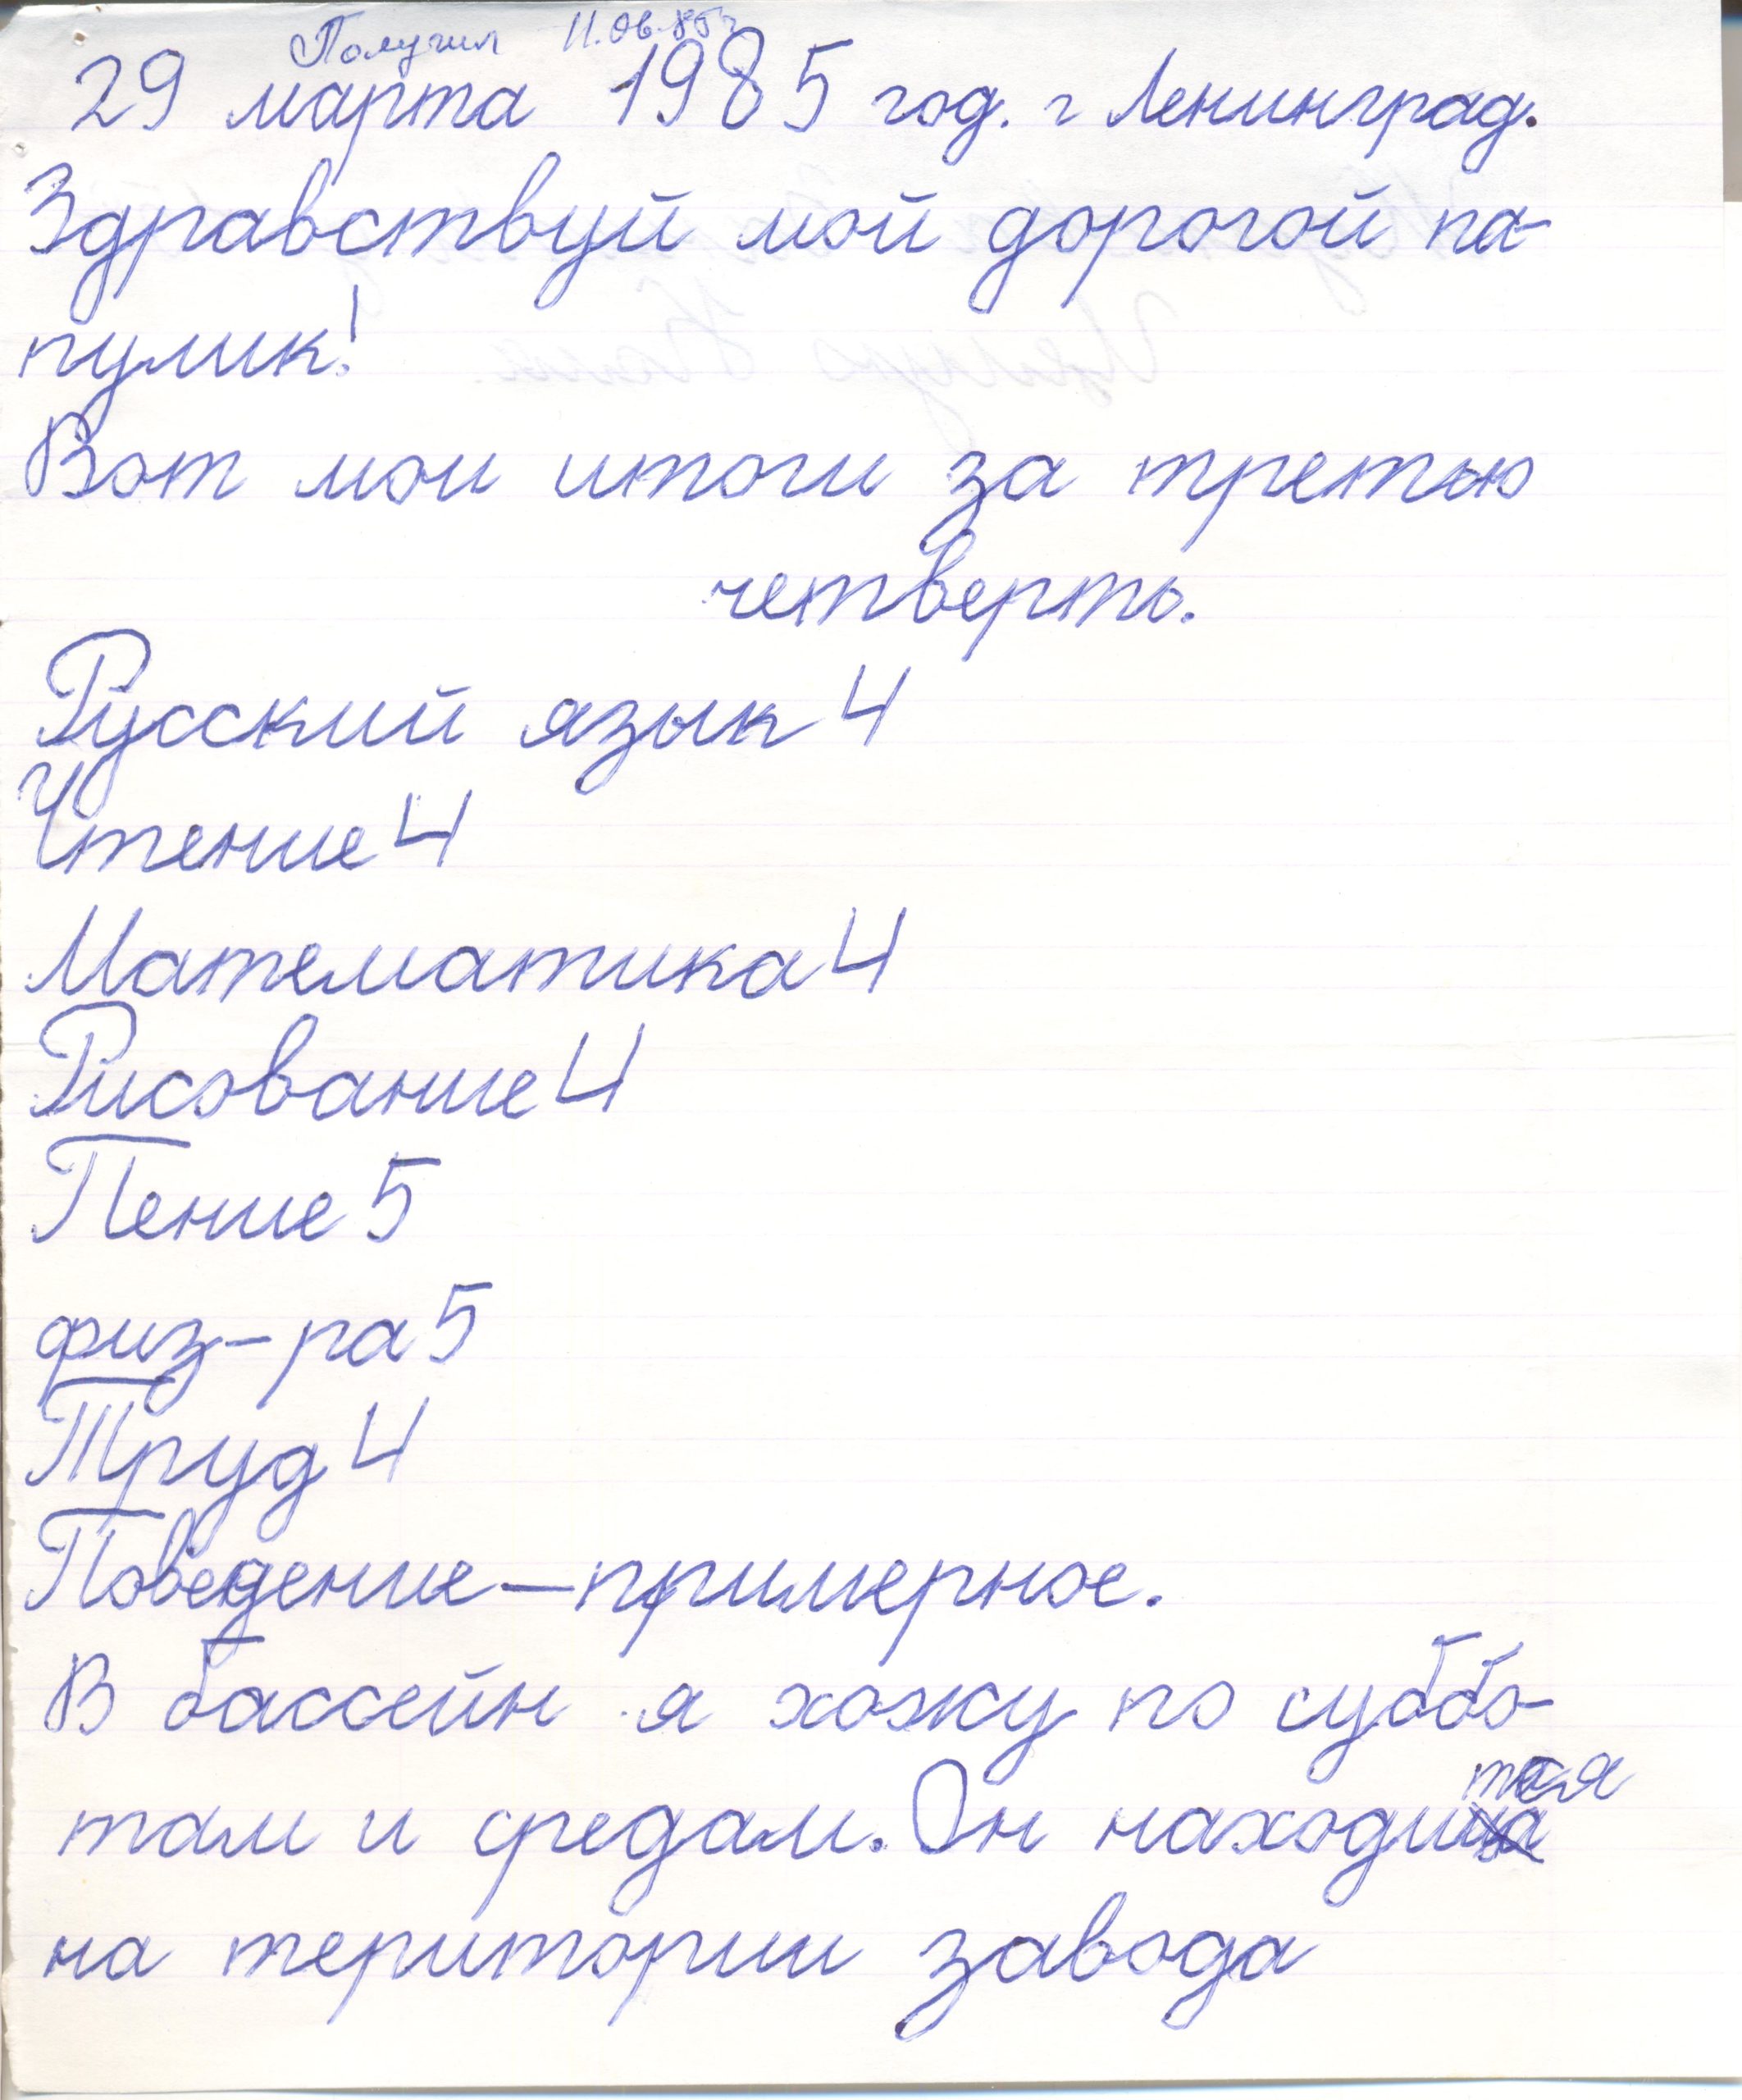 Получил 11.04.85г
29 марта 1985 год. г Ленинград.
Здравствуй мой дорогой па-
пулик!
Вот мои итоги за третью
четверть.
Русский язык 4
Чтение 4
Математика 4
Рисование 4
Пение 5
физ-ра 5
Труд 4
Поведение—примерное.
В бассейн я хожу по суббо-
там и средам. Он находится
на територии завода